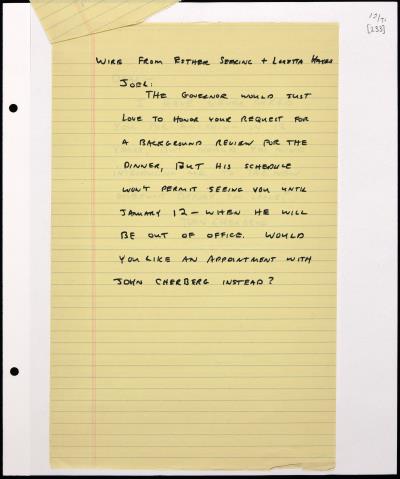 12/71
[233]
WIRE FROM ESTHER SEERING + LORETTA HAYES
JOEL:
THE GOVERNOR WOULD JUST
LOVE TO HONOR YOUR REQUEST FOR
A BACKGROUND REVIEW FOR THE
DINNER, BUT HIS SCHEDULE
WON'T PERMIT SEEING YOU UNTIL
JANUARY 12 - WHEN HE WILL
BE OUT OF OFFICE. WOULD
YOU LIKE AN APPOINTMENT WITH
JOHN CHERBERG INSTEAD?